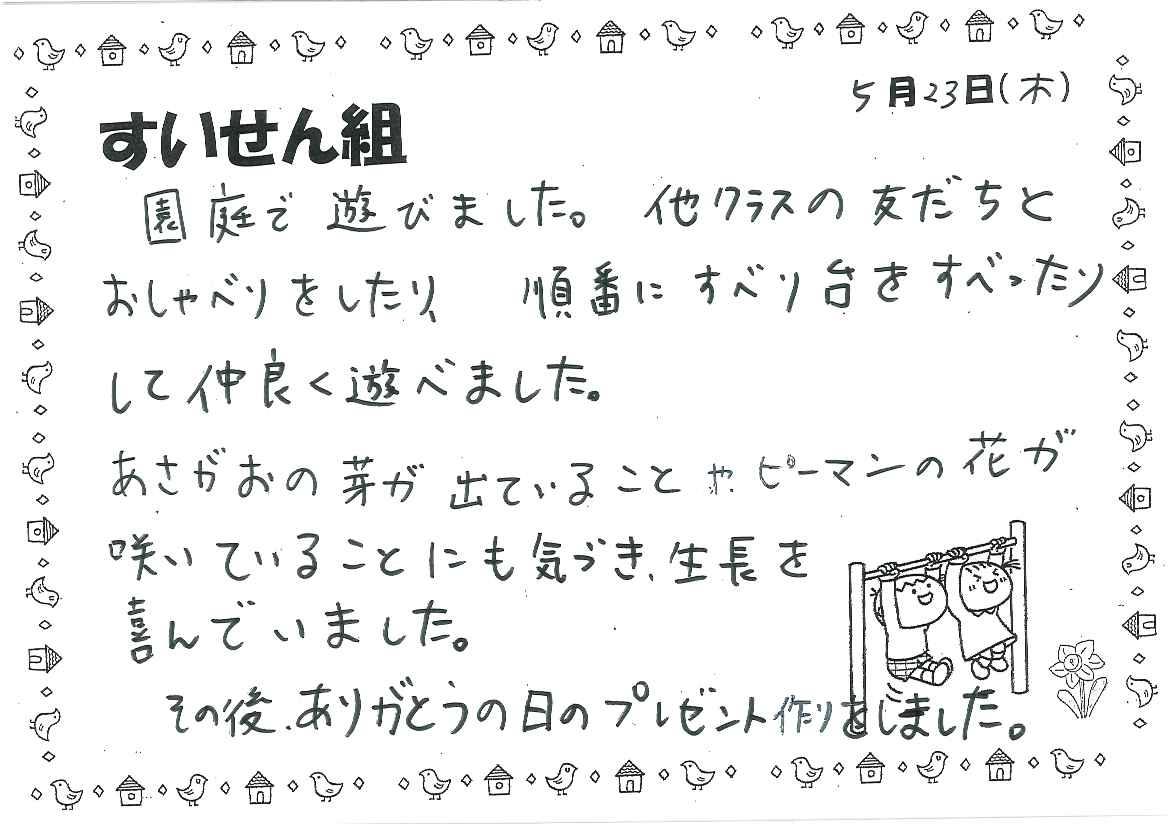 5月23日(木)
すいせん組
園庭で遊びました。他クラスの友だちと
おしゃべりをしたり、順番にすべり台をすべったり
して仲良く遊べました。
あさがおの芽が出ていることや、ピーマンの花が
咲いていることにも気づき、生長を
喜んでいました。
その後、ありがとうの日のプレゼント作りをしました。